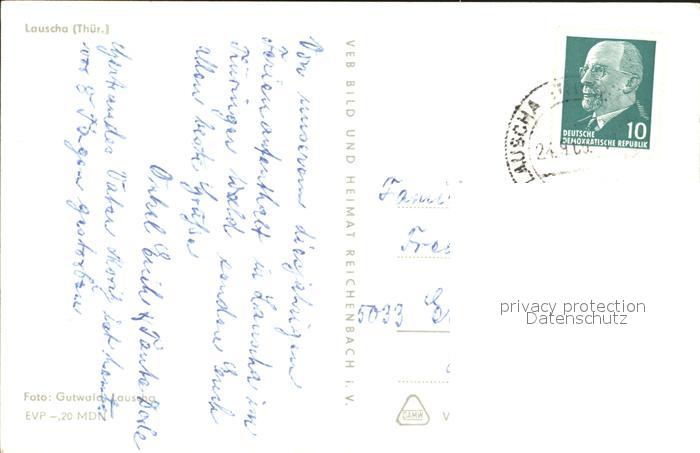 Lauscha (Thür.)
Von unserem diesjährigen
Ferienaufenthalt in Lauscha im
Thüringer Wald senden Euch
allen beste Grüße
Onkel Erich & Tante Dode
Gertraudes Vater Moritz ist heute
vor 8 Tagen gestorben.
VEB BILD UND HEIMAT REICHENBACH i. V.
Foto: Gutwald, Lauscha
EVP –,20 MDN
V
DEUTSCHE
DEMOKRATISCHE REPUBLIK
10
LAUSCHA
Fami
5033
privacy protection
Datenschutz